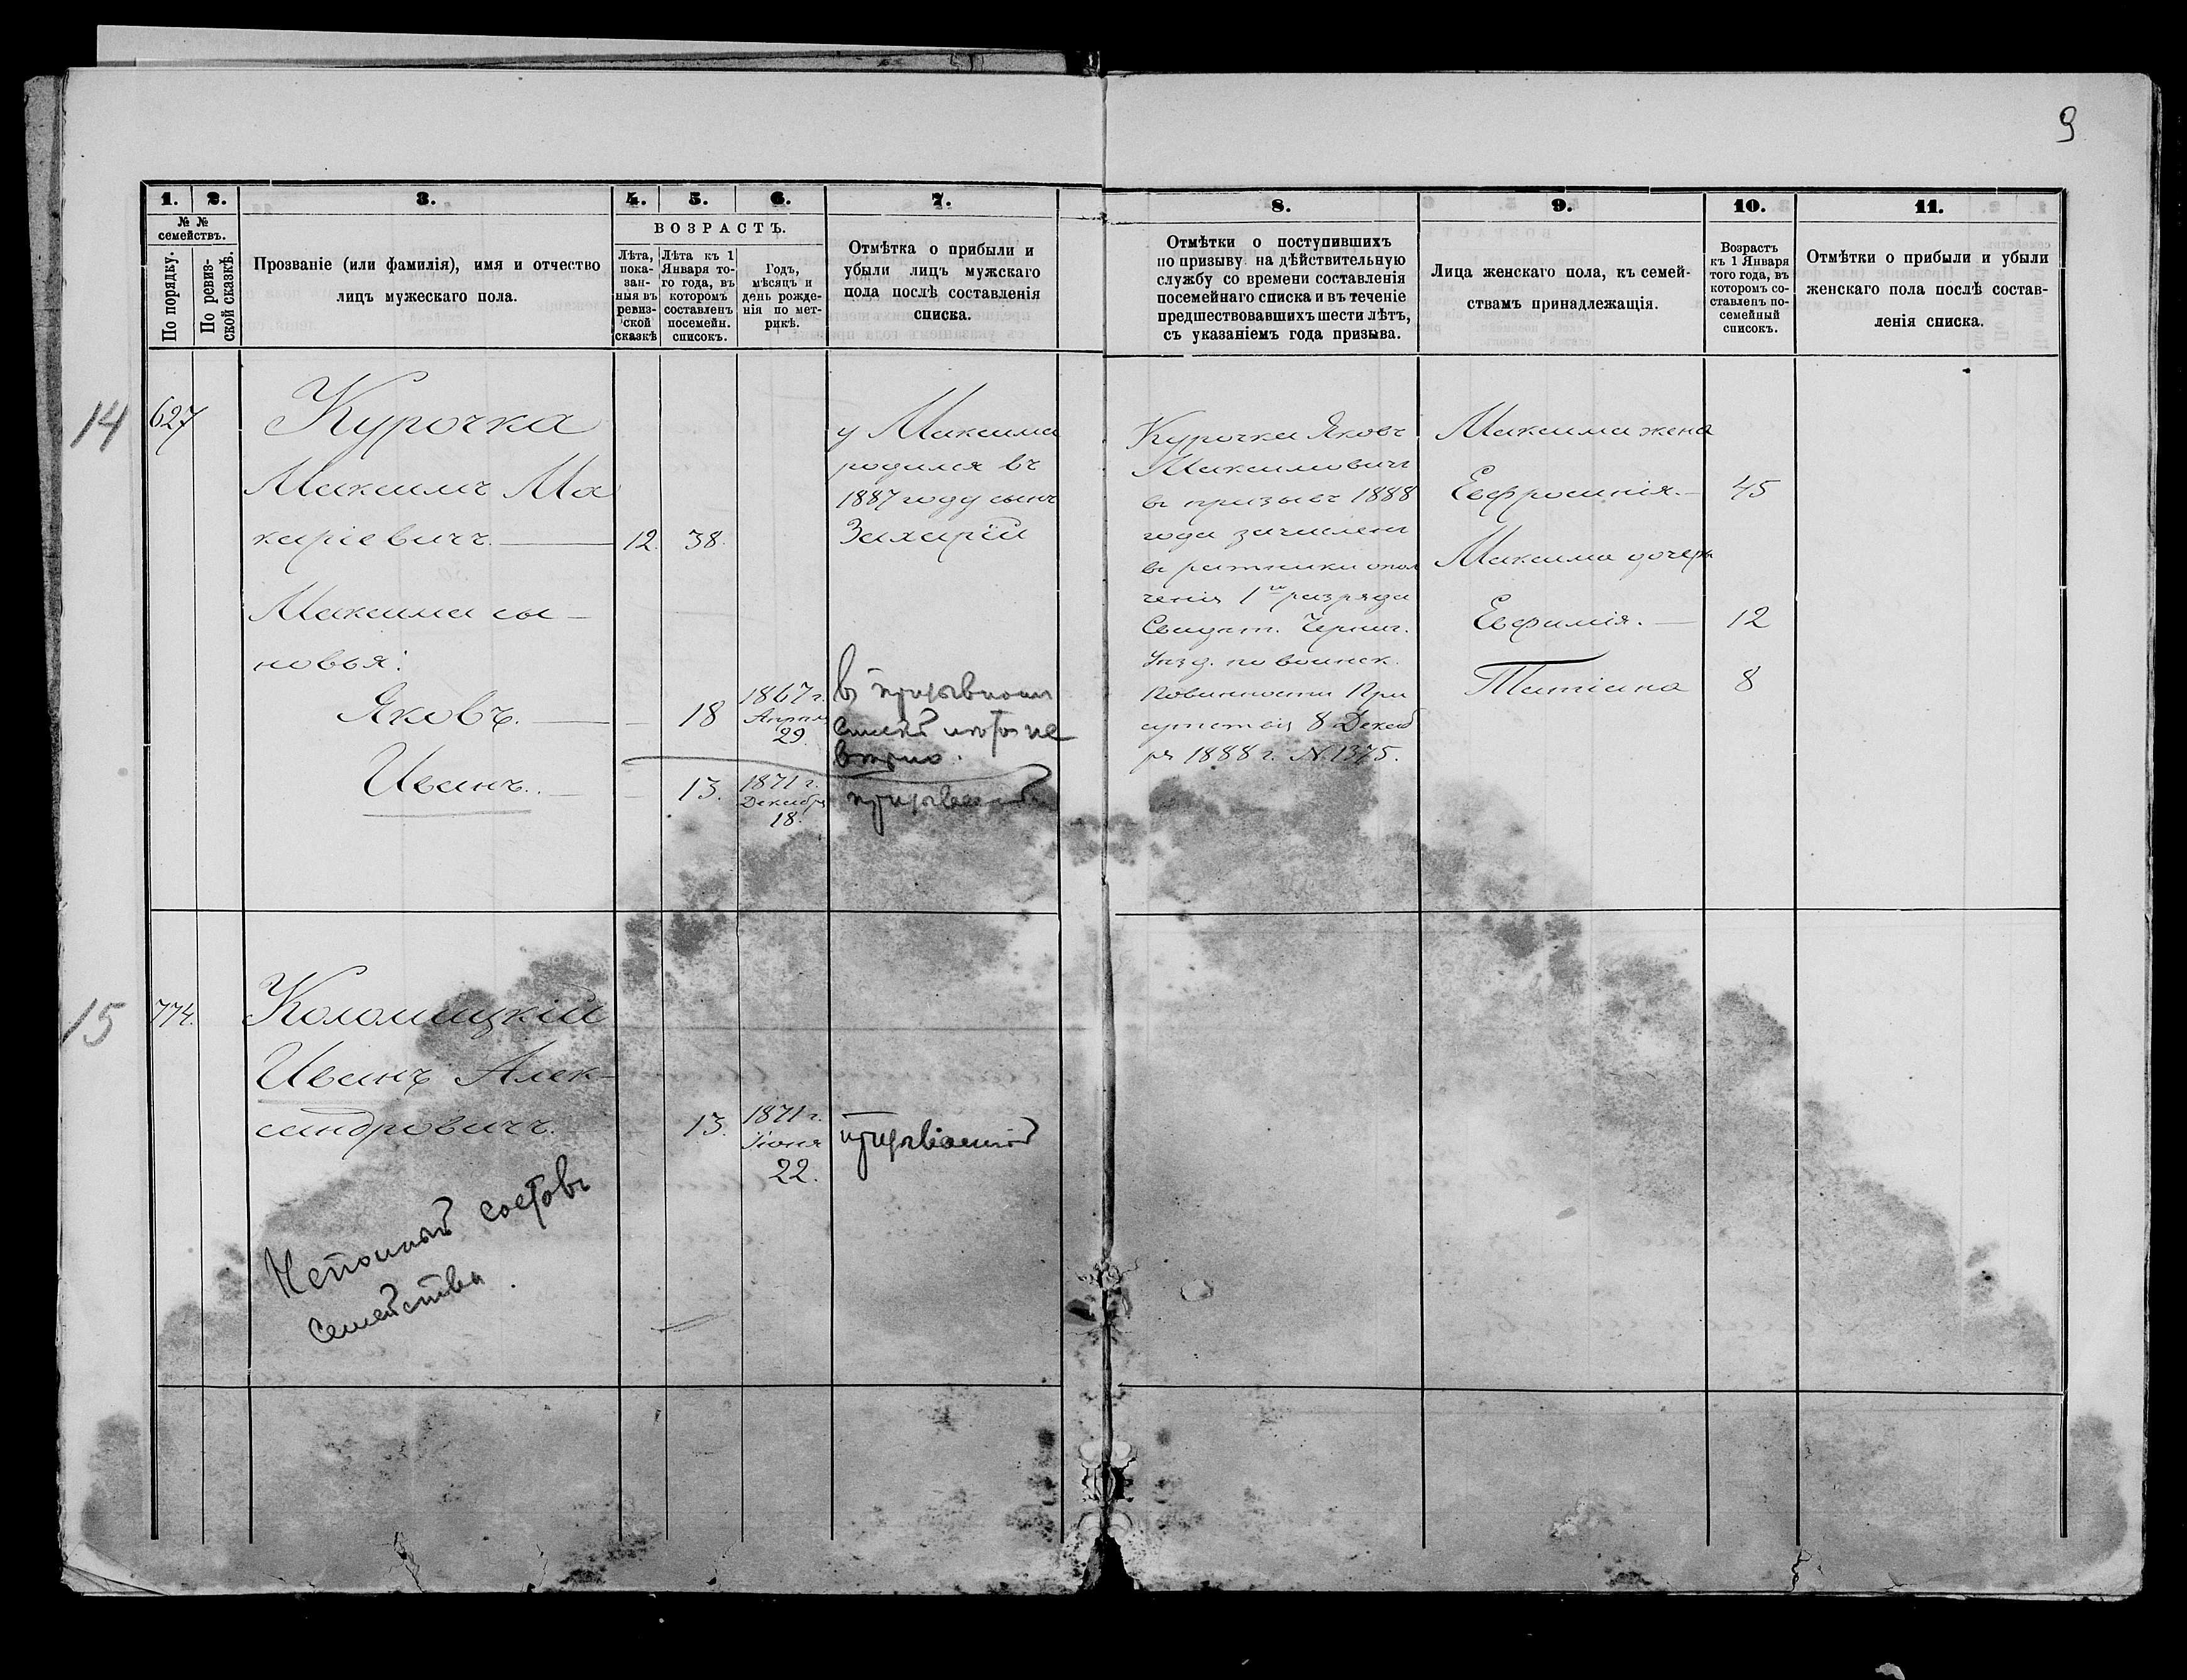 9
1. 2. 3. 4. 5. 6. 7. 8. 9. 10. 11.
№ №
семействъ.
По порядку.
По ревиз-
ской сказкѣ.
Прозваніе (или фамилія), имя и отчество
лицъ мужескаго пола.
ВОЗРАСТЪ.
Лѣта,
пока-
зан-
ныя въ
ревиз-
ской
сказкѣ
Лѣта къ 1
Января то-
го года, въ
которомъ
составленъ
посемейн.
списокъ.
Годъ,
мѣсяцъ и
день рожде-
нія по мет-
рикѣ.
Отмѣтка о прибыли и
убыли лицъ мужскаго
пола послѣ составленія
списка.
Отмѣтки о поступившихъ
по призыву на дѣйствительную
службу со времени составленія
посемейнаго списка и въ теченіе
предшествовавшихъ шести лѣтъ,
съ указаніемъ года призыва.
Лица женскаго пола, къ семей-
ствамъ принадлежащія.
Возрастъ
къ 1 Января
того года, въ
которомъ со-
ставленъ по-
семейный
списокъ.
Отмѣтки о прибыли и убыли
женскаго пола послѣ состав-
ленія списка.
14
627
Курочка
Максимъ Ма
каріевичъ. 12. 38.
Максима сы-
новья:
Яковъ. 18 1867 г.
Апрѣля
29.
Иванъ. 13. 1871 г.
Декабря
18.
у Максима
родился въ
1887 году сынъ
Захарій
в призывной
список
внесено.
призывной
Курочка Яковъ
Максимовичъ
въ призывъ 1888
года зачисленъ
въ ратники опол
ченія 1го разряда
Свидѣт. Черниг.
Уѣзд. по воинск.
Повинности При
сутствія 8 Декаб
ря 1888 г. № 1375.
Максима жена
Евфросинія. 45
Максима дочери
Евфимія. 12
Татіана 8
15
774.
Коломицкій
Иванъ Алек-
сандровичъ. 13. 1871 г.
Іюня
22.
призывной
Неполный составъ
семейства.